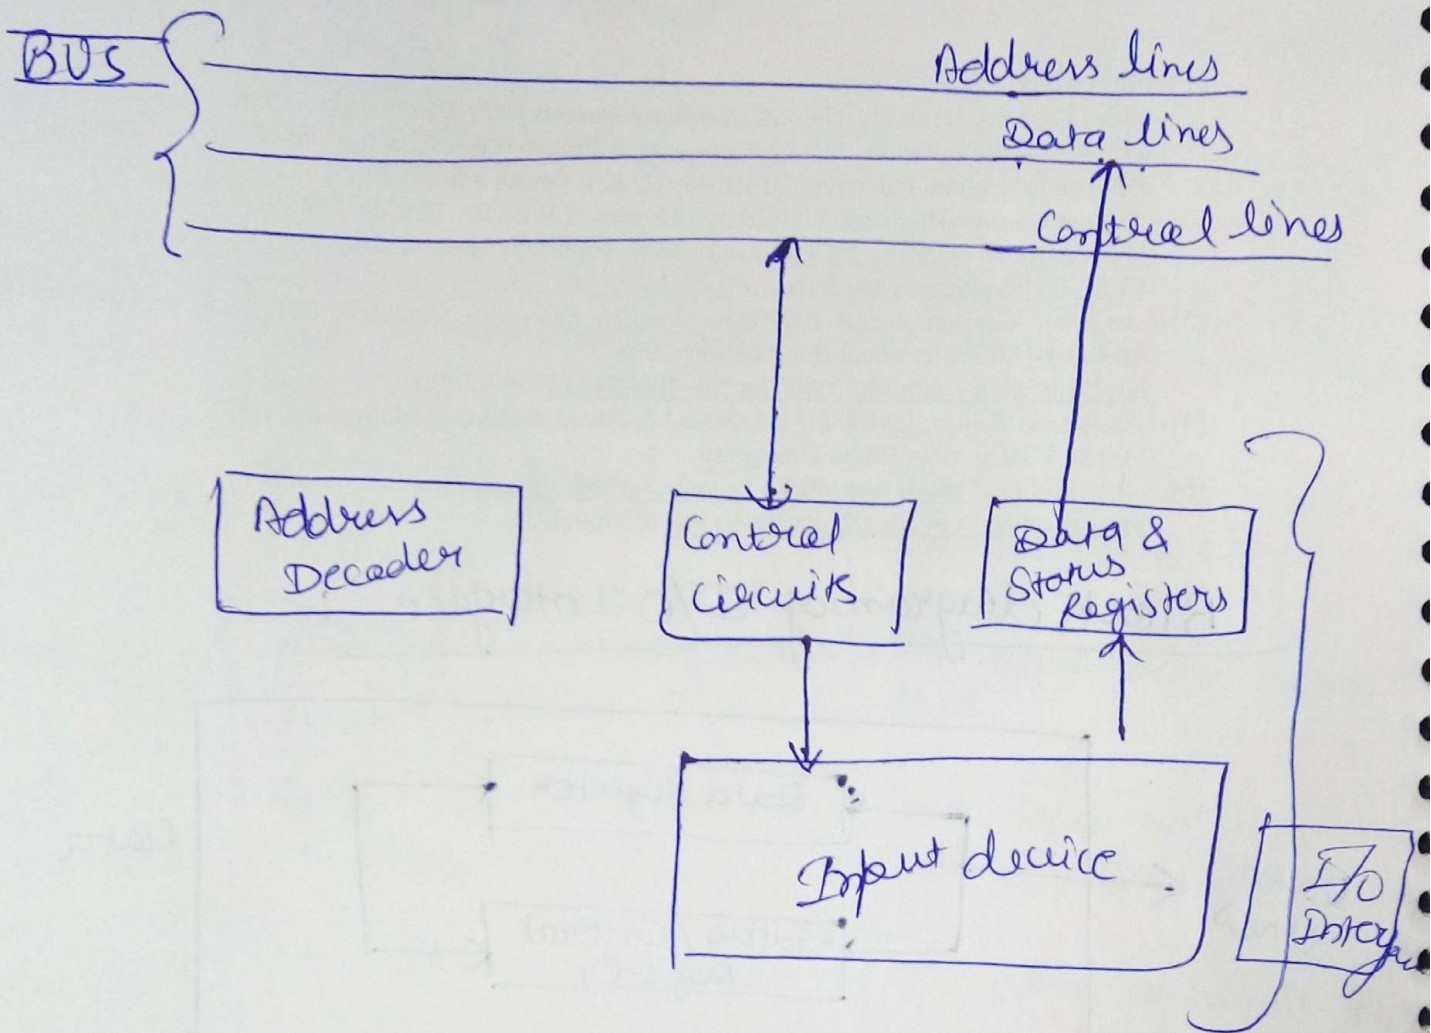 BUS
Address lines
Data lines
Control lines
Address
Decoder
Control
Circuits
Data &
Status
Registers
Input device
I/O